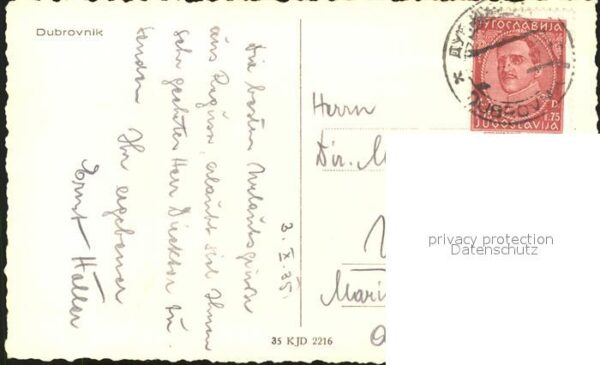 Dubrovnik
Die besten Urlaubsgrüsse
aus Ragusa, erlaubt sich Ihnen
sehr geehrter Herr Direktor zu
senden Ihr ergebener
Ernst Haller
3. X. 35.
Herrn
Dir. M
Mari
35 KJD 2216
ЈУГОСЛАВИЈА
JUGOSLAVIJA
1.75
ДУ
DUBROV
privacy protection
Datenschutz